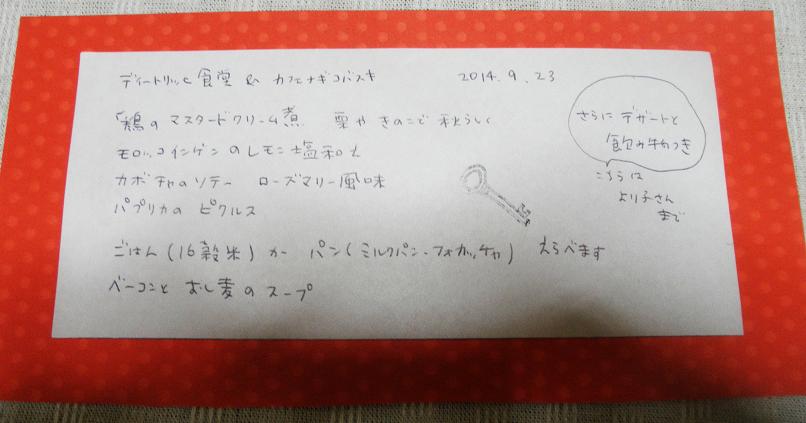 ディートリッヒ食堂 & カフェナギコバスキ
2014.9.23
鶏のマスタードクリーム煮 栗やきのこで秋らしく
モロッコインゲンのレモン塩和え
カボチャのソテー ローズマリー風味
パプリカの ピクルス
ごはん(16穀米)か パン(ミルクパン、フォカッチャ) えらべます
ベーコンと おし麦のスープ
さらに デザートと
飲み物つき
こちらは
より子さん
まで